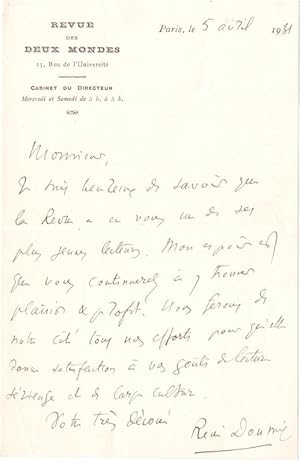 REVUE
DES
DEUX MONDES
15, Rue de l'Université
CABINET DU DIRECTEUR
Mercredi et Samedi de 3 h. à 5 h.
Paris, le 5 avril 1931
Monsieur,
Je suis heureux de savoir que
la Revue a en vous un de ses
plus jeunes lecteurs. Mon espoir est
que vous continuerez à y trouver
plaisir & profit. Nous ferons de
notre côté tous nos efforts pour qu'elle
donne satisfaction à vos goûts de lecture
sérieuse et de large culture.
Votre très dévoué
René Doumic